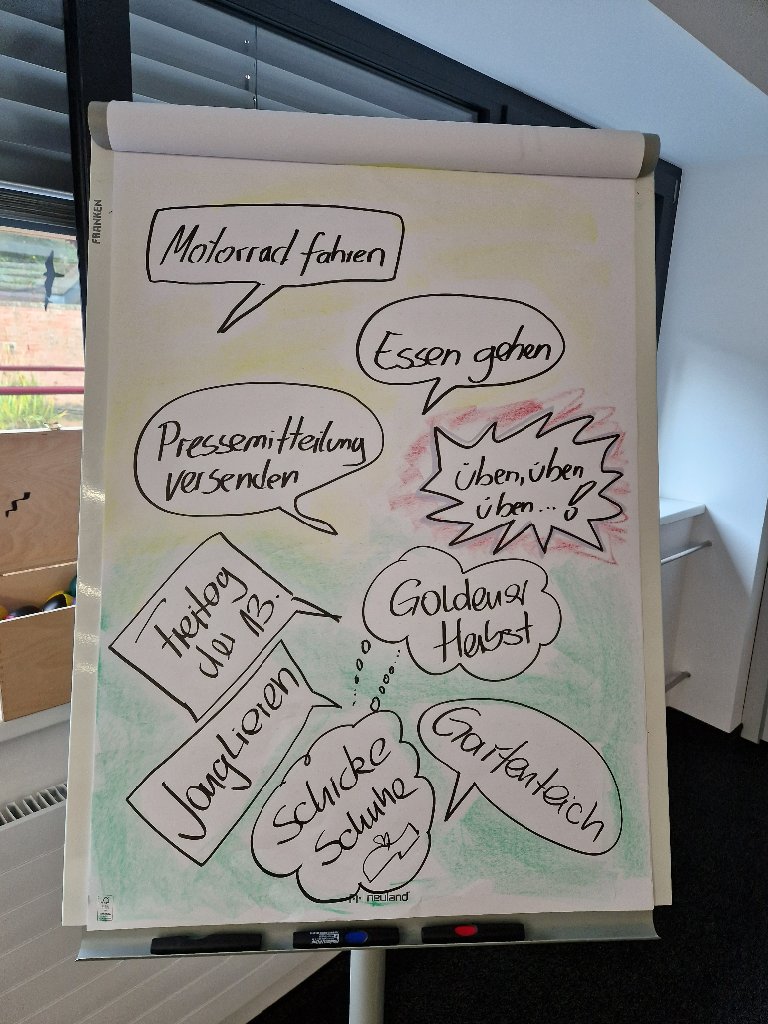 FRANKEN
Motorrad fahren
Essen gehen
Pressemitteilung
versenden
üben, üben
üben...!
Freitag
der 13.
Goldener
Herbst
Jonglieren
Schicke
Schuhe
Gartenteich
neuland